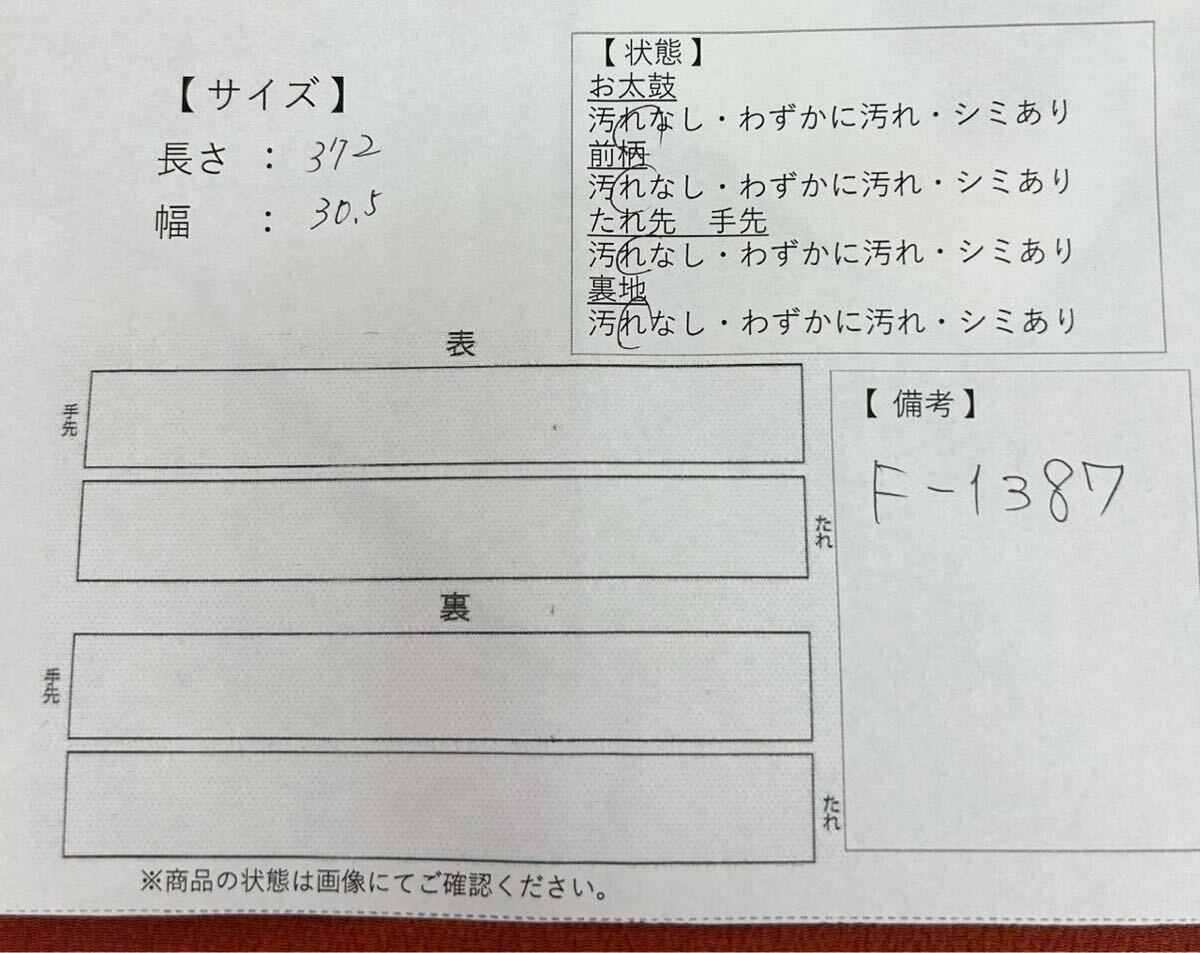 【サイズ】
長さ : 372
幅 : 30.5
【状態】
お太鼓
汚れなし・わずかに汚れ・シミあり
前柄
汚れなし・わずかに汚れ・シミあり
たれ先 手先
汚れなし・わずかに汚れ・シミあり
裏地
汚れなし・わずかに汚れ・シミあり
表
手先
たれ
裏
手先
たれ
【備考】
F-1387
※商品の状態は画像にてご確認ください。